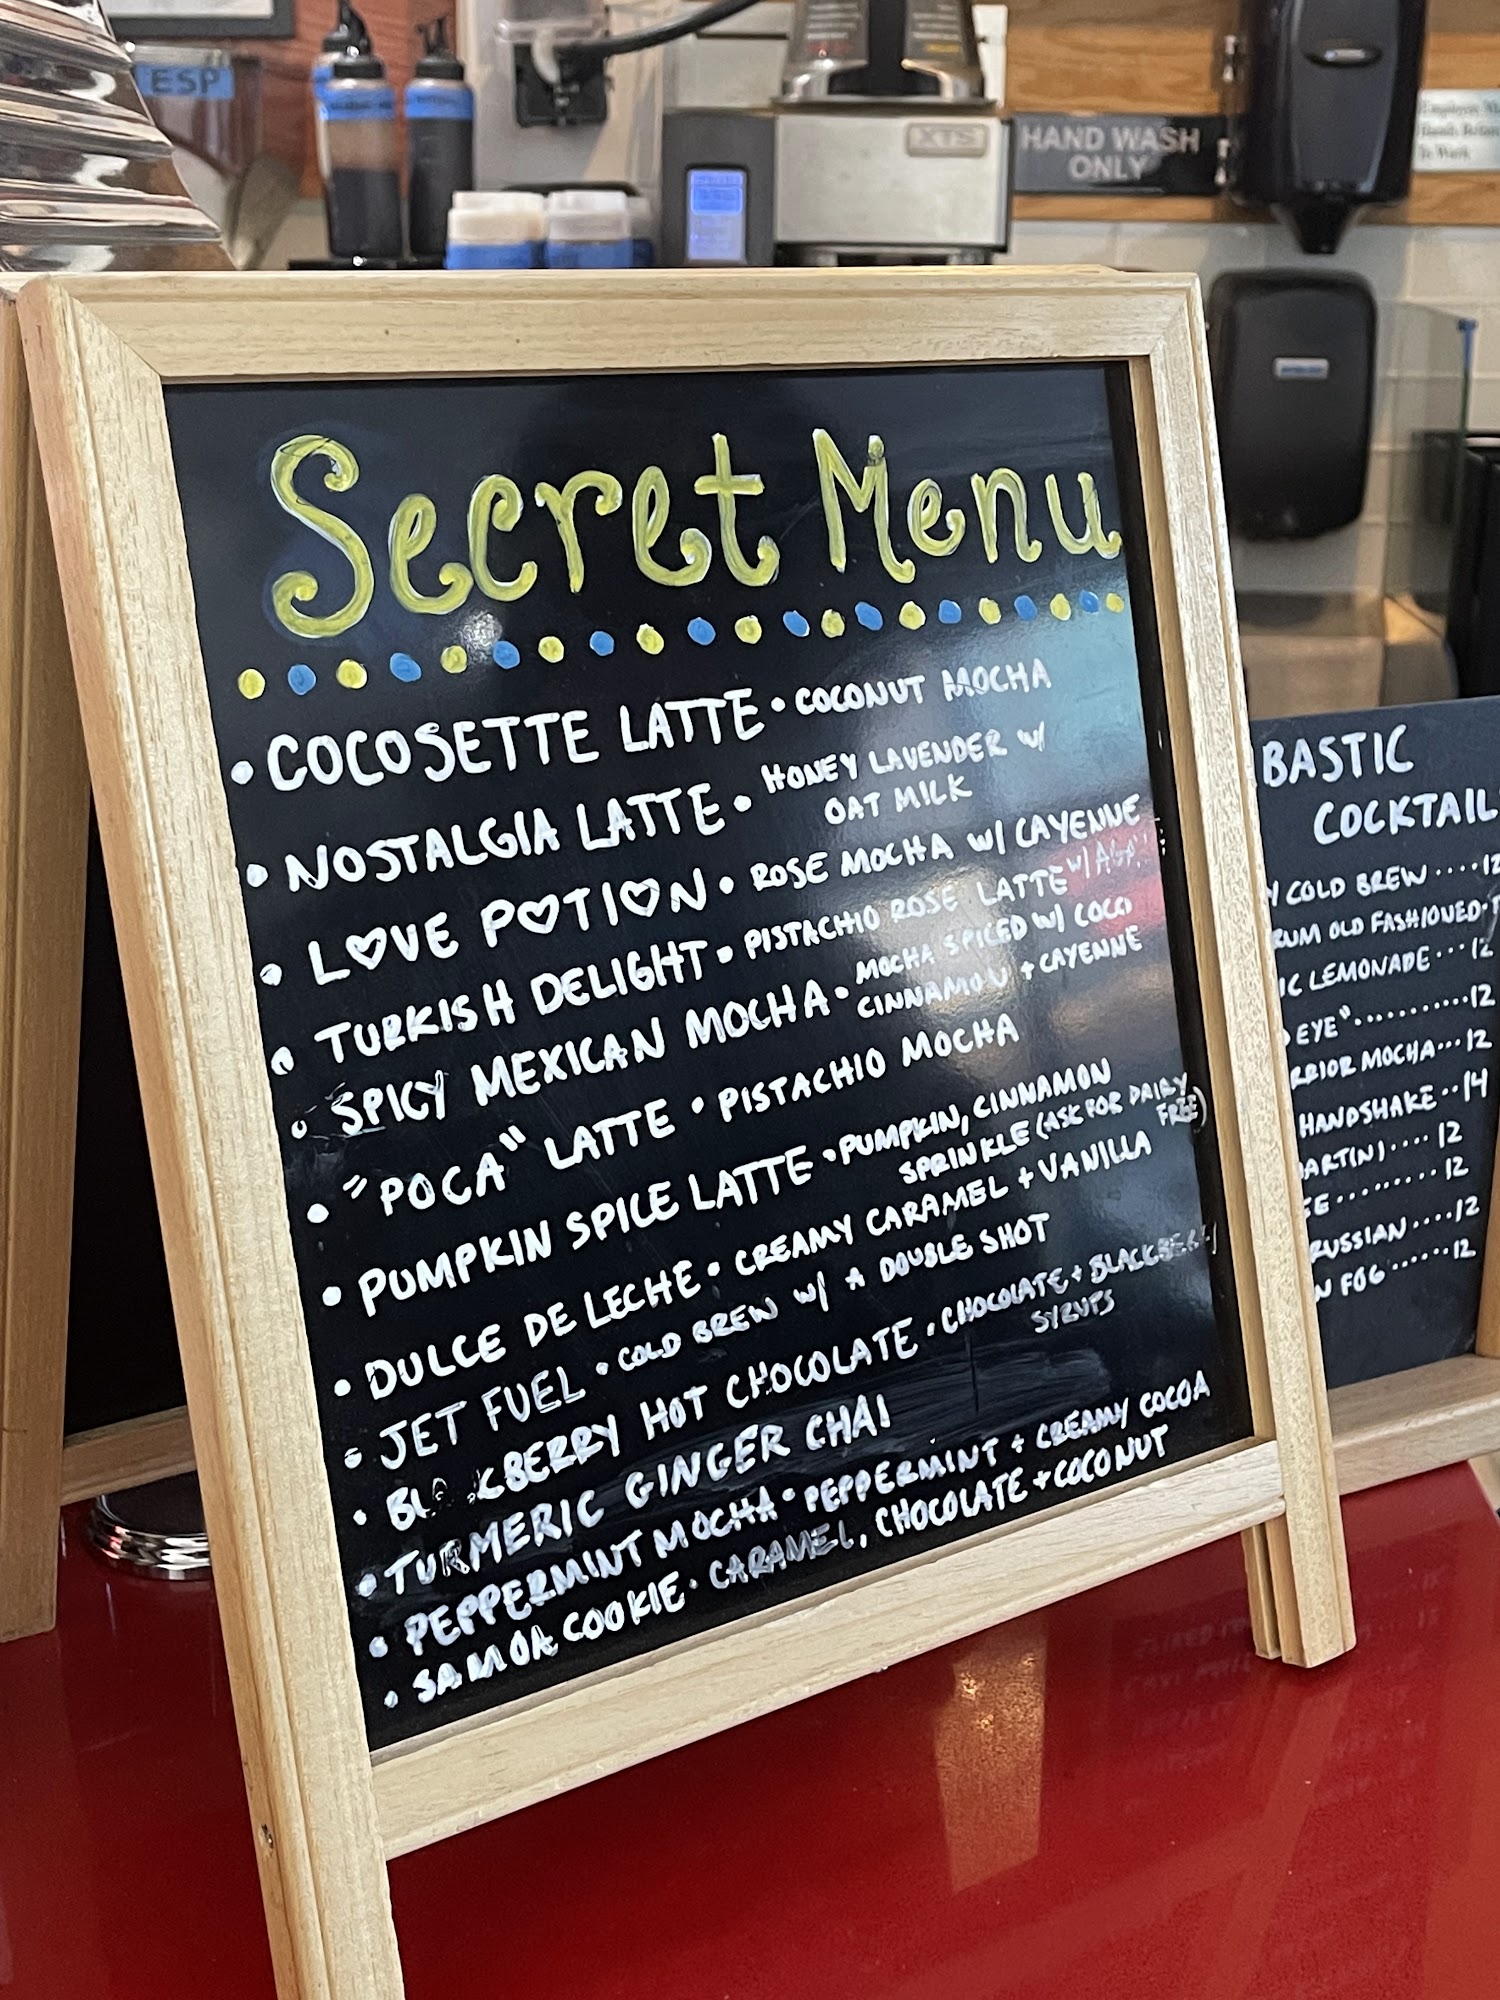 ESP
XTS
HAND WASH
ONLY
Secret Menu
• COCOSETTE LATTE • COCONUT MOCHA
• NOSTALGIA LATTE • HONEY LAVENDER W/
OAT MILK
• LOVE POTION • ROSE MOCHA W/ CAYENNE
• TURKISH DELIGHT • PISTACHIO ROSE LATTE W/
• SPICY MEXICAN MOCHA • MOCHA SPICED W/ COCO
CINNAMON + CAYENNE
• "POCA" LATTE • PISTACHIO MOCHA
• PUMPKIN SPICE LATTE • PUMPKIN, CINNAMON
SPRINKLE (ASK FOR DAIRY
FREE)
• DULCE DE LECHE • CREAMY CARAMEL + VANILLA
• JET FUEL • COLD BREW W/ A DOUBLE SHOT
• BLACKBERRY HOT CHOCOLATE • CHOCOLATE + BLACKBERRY
SYRUPS
• TURMERIC GINGER CHAI
• PEPPERMINT MOCHA • PEPPERMINT + CREAMY COCOA
• SAMOA COOKIE • CARAMEL, CHOCOLATE + COCONUT
BASTIC
COCKTAIL
COLD BREW ···· 12
RUM OLD FASHIONED
IC LEMONADE ··· 12
EYE" ········· 12
RRIOR MOCHA ··· 12
HANDSHAKE ·· 14
ARTINI ···· 12
EE ········· 12
RUSSIAN ···· 12
N FOG ······ 12